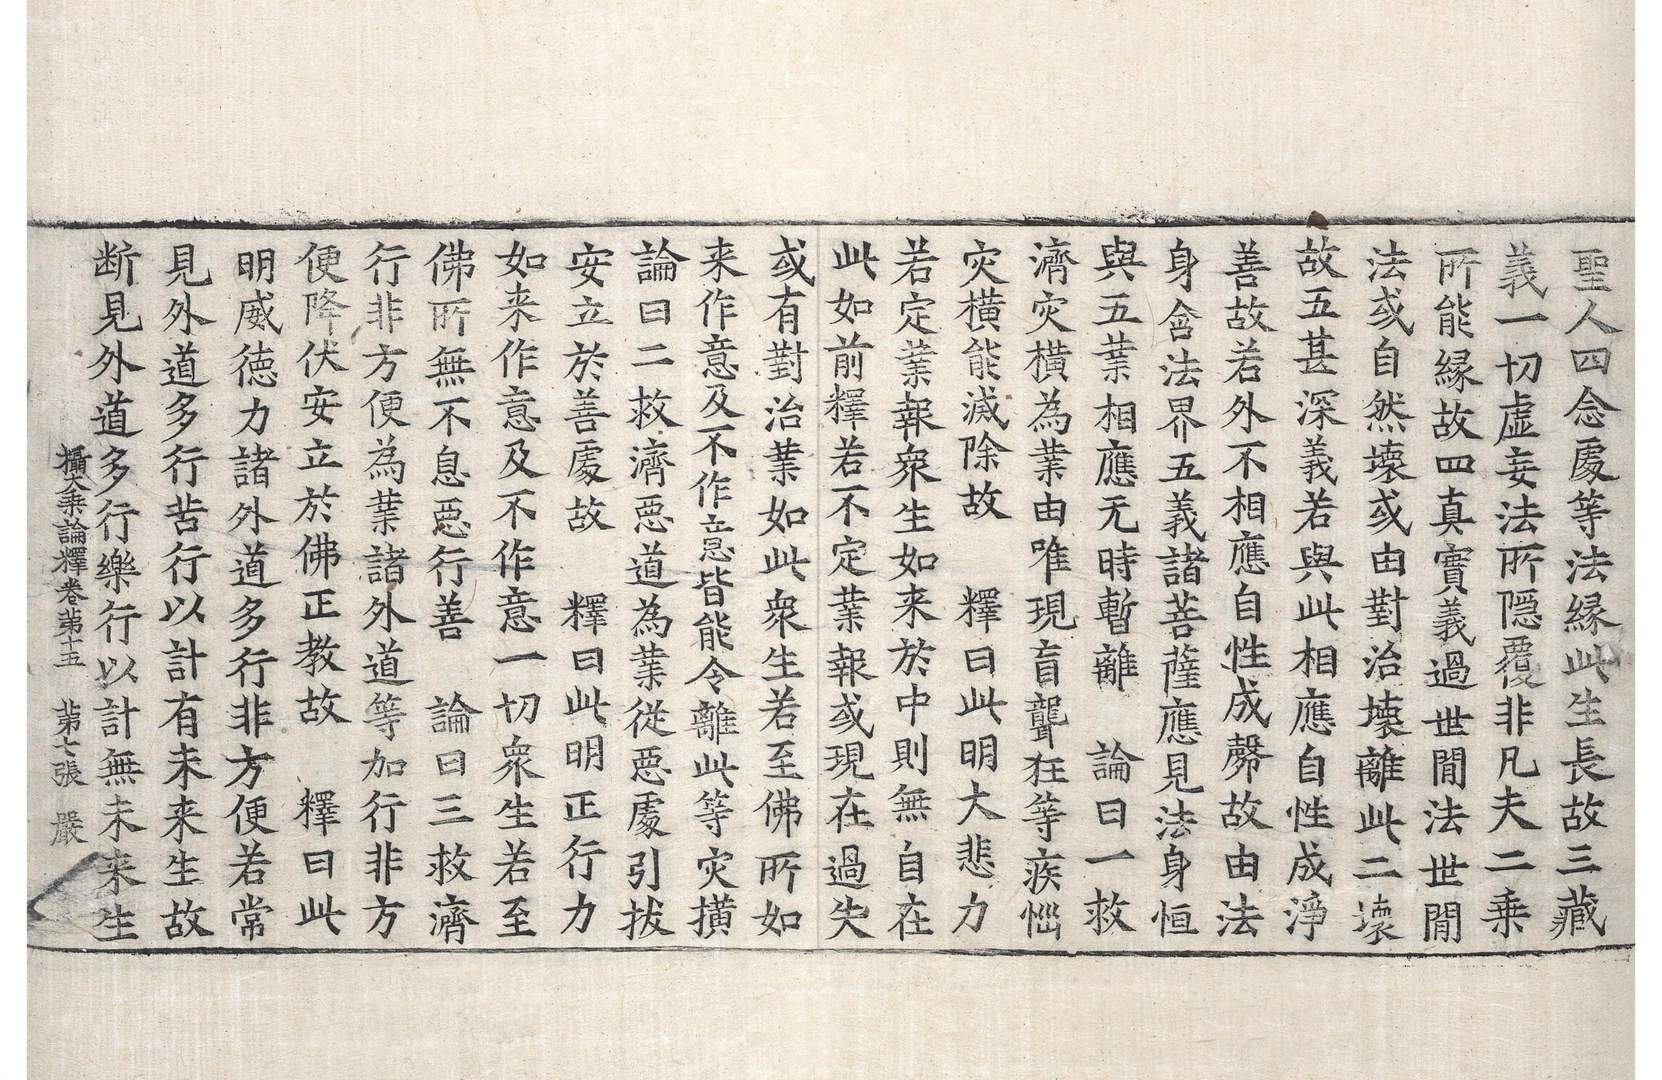 聖人四念處等法緣此生長故三藏
義一切虛妄法所隱覆非凡夫二乘
所能緣故四真實義過世間法世間
法或自然壞或由對治壞離此二壞
故五甚深義若與此相應自性成淨
善故若外不相應自性成㱾故由法
身含法界五義諸菩薩應見法身恒
與五業相應无時暫離　論曰一救
濟灾橫為業由唯現盲聾狂等疾惱
灾橫能滅除故　釋曰此明大悲力
若定業報衆生如来於中則無自在
此如前釋若不定業報或現在過失
或有對治業如此衆生若至佛所如
来作意及不作意皆能令離此等灾橫
論曰二救濟惡道為業從惡處引拔
安立於善處故　釋曰此明正行力
如来作意及不作意一切衆生若至
佛所無不息惡行善　論曰三救濟
行非方便為業諸外道等加行非方
便降伏安立於佛正教故　釋曰此
明威德力諸外道多行非方便若常
見外道多行苦行以計有未来生故
断見外道多行樂行以計無未来生
攝大乘論釋卷苐十五　苐七張　嚴